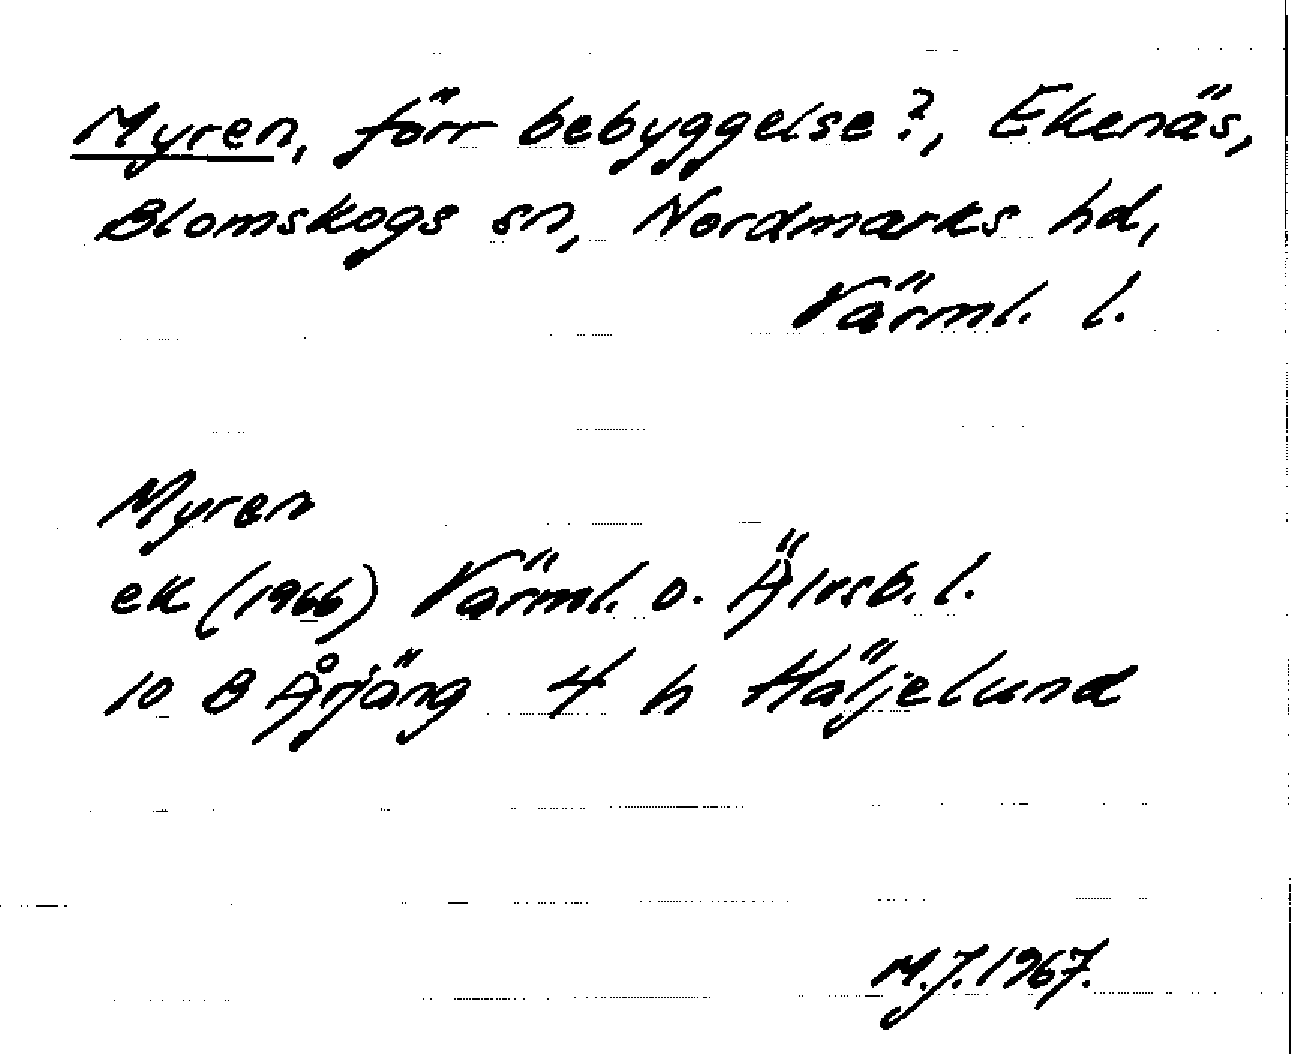 Myren, förr bebyggelse?, Ekenäs,
Blomskogs sn, Nordmarks hd,
Värml. l.
Myren
ek (1966) Värml. o. Älvsb. l.
10 B Årjäng 4 h Häljelund
M.J. 1967.